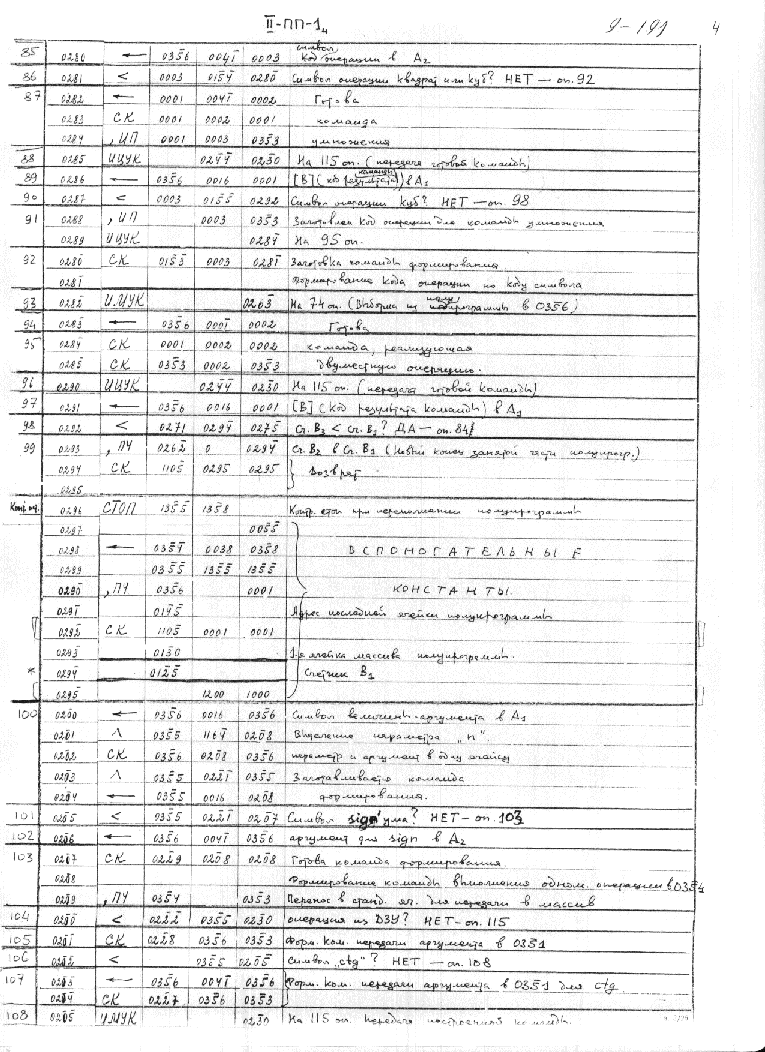 II-ПП-1₄ 9-191 4
85 0280 ← 0356 0041̄ 0003 Код символ операции в А₂
86 0281 < 0003 0154̄ 0280 Символ операции квадрат или куб? НЕТ — оп. 92
87 0282 ← 0001 0041̄ 0002 Готова
0283 СК 0001 0002 0001 команда
0284 ,ИП 0001 0003 0353 умножения
88 0285 ИЦУК 0244̄ 0230 На 115 оп. (передача готовой команды)
89 0286 ← 0356 0016 0001 [В] (код результата команды) в А₁
90 0287 < 0003 0155 0292 Символ операции куб? НЕТ — оп. 98
91 0288 ,ИП 0003 0353 Заготовлен код операции для команды умножения
0289 ИЦУК 0284̄ На 95 оп.
92 0280̄ СК 0153 0003 0281̄ Заготовка команды формирования
0281̄ Формирование кода операции по коду символа
93 0282̄ ИМУК 0263 На 74 оп. (Выборка из полупрограммы в 0356)
94 0283̄ ← 0356 0001̄ 0002 Готова
95 0284̄ СК 0001 0002 0002 команда, реализующая
0285̄ СК 0353 0002 0353 двуместную операцию.
96 0290 ИЦУК 0244̄ 0230 На 115 оп. (передача готовой команды)
97 0291 ← 0356 0016 0001 [В] (код результата команды) в А₁
98 0292 < 0271 0294̄ 0275̄ Сч. В₂ < Сч. В₁? ДА — оп. 84
99 0293 ,ПУ 0262̄ 0 0294̄ Сч. В₂ в Сч. В₁ (Новый конец занятой части полупрогр.)
0294 СК 1105 0295 0295 Возврат
0295
0296 СТОП 1355 1358 Контр. стоп при переполнении полупрограммы
0297 0055
0298 ← 0354̄ 0038 0358 ВСПОМОГАТЕЛЬНЫЕ
0299 0355 1355 1355
0290̄ ,ПУ 0356 0001 КОНСТАНТЫ.
0291̄ 0145̄ Адрес последней ячейки полупрограммы
0292̄ СК 1105 0001 0001
0293̄ 0130 1-я ячейка массива полупрограммы.
* 0294̄ 0125̄ Счетчик В₁
0295̄ 1200 1000
100 0200̄ ← 0356 0016 0356 Символ величины-аргумента в А₁
0201̄ Λ 0355 1164̄ 0208 Выделение параметра „п“.
0202̄ СК 0356 0208 0356 параметр и аргумент в одну ячейку
0203̄ Λ 0355 0221̄ 0355 Заготавливается команда
0204̄ ← 0355 0016 0208 формирования.
101 0205̄ < 0355 0221̄ 0207 Символ sign'ума? НЕТ — оп. 103
102 0206 ← 0356 0041̄ 0356 аргумент для sign в А₂
103 0207 СК 0229 0208 0208 Готова команда формирования
0208 Формирование команды выполнения одном. операции в 0354
0209 ,ПУ 0354 0353 Перенос в станд. яч. для передачи в массив
104 0200̄ < 0222̄ 0355 0230 операция из ДЗУ? НЕТ — оп. 115
105 0201̄ СК 0228 0356 0353 Форм. ком. передачи аргумента в 0351
106 0202̄ < 0355 0205̄ Символ „ctg“? НЕТ — оп. 108
107 0203̄ ← 0356 0041̄ 0356 Форм. ком. передачи аргумента в 0351 для ctg
0204̄ СК 0227 0356 0353
108 0205̄ УМУК 0230 На 115 оп. передача построенной команды.